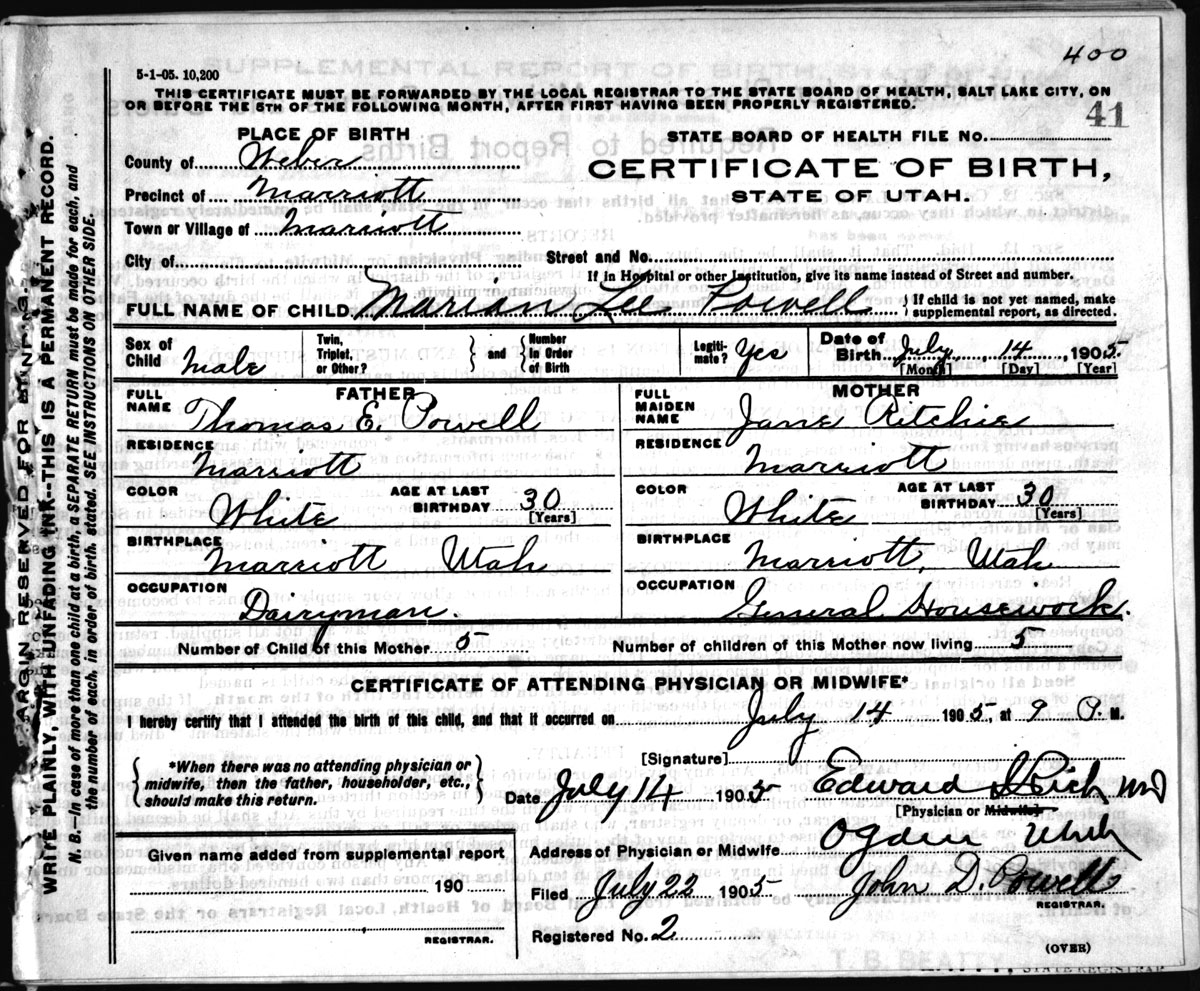 400
5-1-05. 10,200
THIS CERTIFICATE MUST BE FORWARDED BY THE LOCAL REGISTRAR TO THE STATE BOARD OF HEALTH, SALT LAKE CITY, ON
OR BEFORE THE 5TH OF THE FOLLOWING MONTH, AFTER FIRST HAVING BEEN PROPERLY REGISTERED.
41
PLACE OF BIRTH
STATE BOARD OF HEALTH FILE NO.
County of Weber
CERTIFICATE OF BIRTH,
Precinct of Marriott
STATE OF UTAH.
Town or Village of Marriott
City of Street and No.
If in Hospital or other Institution, give its name instead of Street and number.
FULL NAME OF CHILD Marion Lee Powell } If child is not yet named, make
supplemental report, as directed.
Sex of Child Male Twin, Triplet, or Other? } and { Number in Order of Birth Legitimate? Yes Date of Birth July, 14, 1905
[Month] [Day] [Year]
FATHER MOTHER
FULL NAME Thomas E. Powell FULL MAIDEN NAME Jane Ritchie
RESIDENCE Marriott RESIDENCE Marriott
COLOR White AGE AT LAST BIRTHDAY 30 [Years] COLOR White AGE AT LAST BIRTHDAY 30 [Years]
BIRTHPLACE Marriott Utah BIRTHPLACE Marriott, Utah
OCCUPATION Dairyman. OCCUPATION General Housework.
Number of Child of this Mother 5 Number of children of this Mother now living 5
CERTIFICATE OF ATTENDING PHYSICIAN OR MIDWIFE*
I hereby certify that I attended the birth of this child, and that it occurred on July 14 1905, at 9 P. M.
{ *When there was no attending physician or
midwife, then the father, householder, etc.,
should make this return. }
[Signature]
Date July 14 1905 Edward S Rich MD
[Physician or Midwife]
Given name added from supplemental report
Address of Physician or Midwife Ogden Utah
190
Filed July 22 1905 John D. Powell
REGISTRAR.
REGISTRAR.
Registered No. 2
(OVER)
T. B. BEATTY, STATE REGISTRAR
MARGIN RESERVED FOR BINDING.
WRITE PLAINLY, WITH UNFADING INK--THIS IS A PERMANENT RECORD.
N. B.—In case of more than one child at a birth, a SEPARATE RETURN must be made for each, and
the number of each, in order of birth, stated. SEE INSTRUCTIONS ON OTHER SIDE.